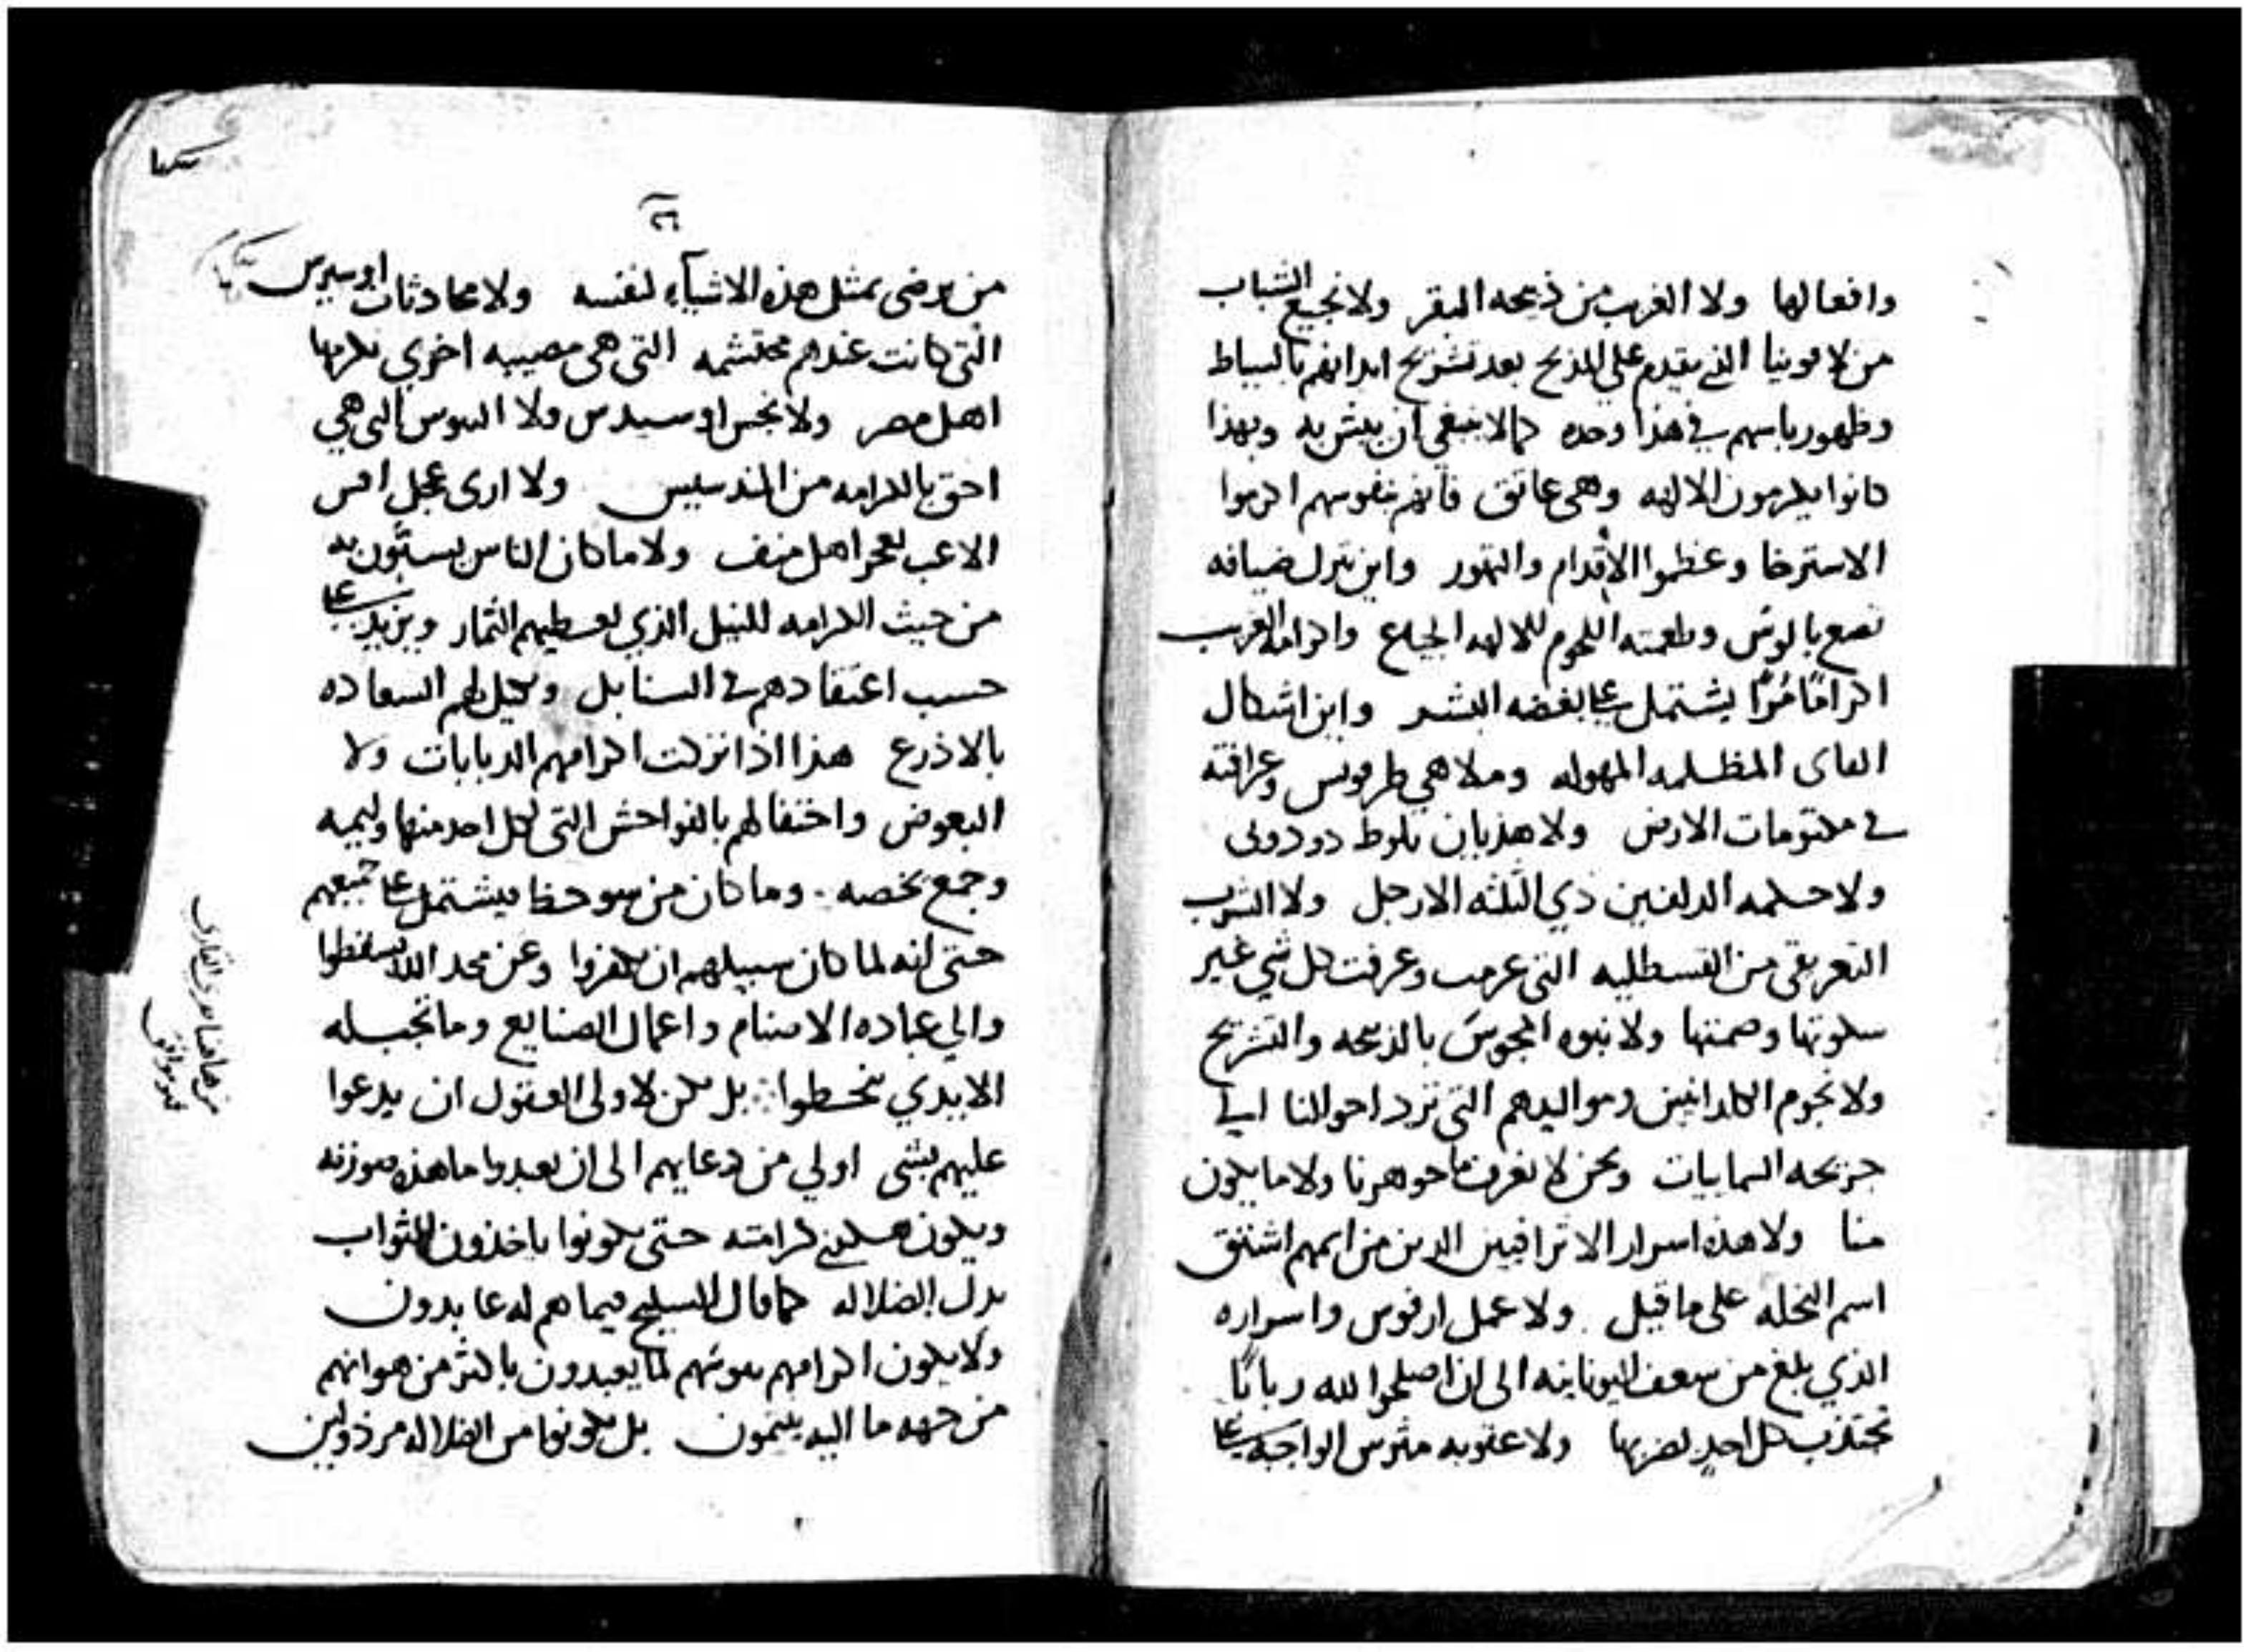 وافعالها ولا الغرب من ذبحه البقر ولا نجيع الشباب
من لاقونيا الذي يقدم علي المذبح بعد تشريح ابدانهم بالسياط
وظهور باسهم في هذا وحده كما لا ينبغي ان به وبهذا
كانوا يكرمون الالهه وهي عاتق فانهم نفوسهم اكرموا
الاسترخا وعظموا الاقدام والتهور واين تنزل ضيافه
وطعمته اللحوم للالهه الجياع واكرامه الغرب
اكرامًا مُرًا يشتمل علي بغضه البشر واين اشكال
المظلمه المهوله وملاهي طرفونس وعرافته
في مكتومات الارض ولا هذيان بلوط دودونى
ولا حكمه الدلفين ذي الثلثه الارجل ولا الشرب
من القسطليه التي وعرفت كل شي غير
سكوتها وصمتها ولا نبوه المجوس بالذبحه والتشريح
ولا نجوم الكلدانيين ومواليدهم التي ترد احوالنا الي
السمايات ونحن لا نعرف ما جوهرنا ولا ما يكون
منا ولا هذه اسرار الاثراقيين الدين من اسمهم اشتق
اسم النحله على ما قيل ولا عمل ارفوس واسراره
الذي بلغ من سعف اليونانيه الى ان اصلحوا لله ربابًا
تجتذب كل احدٍ لضربها ولا عقوبه مثرس الواجبه علي
٢٦
من يرضى بمثل هذه الاشياء لنفسه ولا محادثات اوسيرس
التي كانت عندهم محتشمه التي هي مصيبه اخري يكرمها
اهل مصر ولا نجس اوسيدس ولا التيوس التي هي
احق بالكرامه من المندسيس ولا ارى عجل افس
الاعب اهل منف ولا ما كان الناس يسبّون به
من حيث الكرامه للنيل الذي يعطيهم الثمار ويزيد علي
حسب اعتقادهم في السنابل ويكيل لهم السعاده
بالاذرع هذا اذا تركت اكرامهم الدبابات ولا
البعوض واحتفالهم بالفواحش التي لكل احد منها وليمه
وجمع يخصه وما كان من سو حظ يشتمل علي جميعهم
حتى انه لما كان سبيلهم ان يكفروا وعن مجد الله يسقطوا
والي عباده الاصنام واعمال الصنايع وما تجبله
الايدي ينحطوا بل يكن لاولى العقول ان يدعوا
عليهم بشي اولي من دعايهم الى ان يعبدوا ما هذه صورته
ويكون هكذي كرامته حتى يكونوا ياخذون الثواب
بدل الضلاله كما قال السليح فيما هم له عابدون
ولا يكون اكرامهم لما يعبدون باكثر من هوانهم
من جهه ما اليه ينتمون بل يكونوا من الضلاله مرذولين